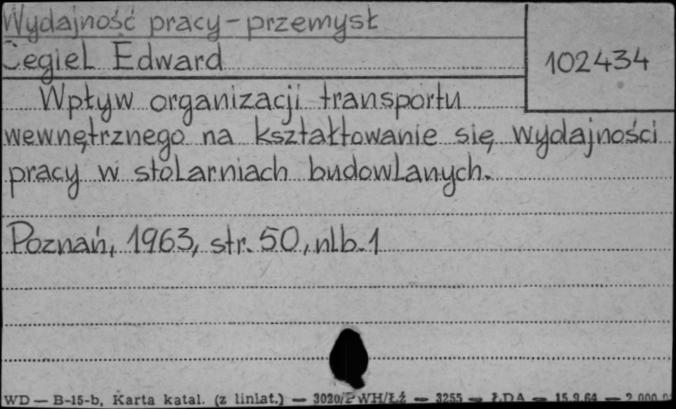 Wydajność pracy - przemysł
Cegieł Edward
102434
Wpływ organizacji transportu
wewnętrznego na kształtowanie się wydajności
pracy w stolarniach budowlanych.
Poznań, 1963, str. 50, nlb. 1
WD — B-15-b, Karta katal. (z liniat.) — 3020/PWH/Łź — 3255 — ŁDA — 15.9.64 — 2.000.0